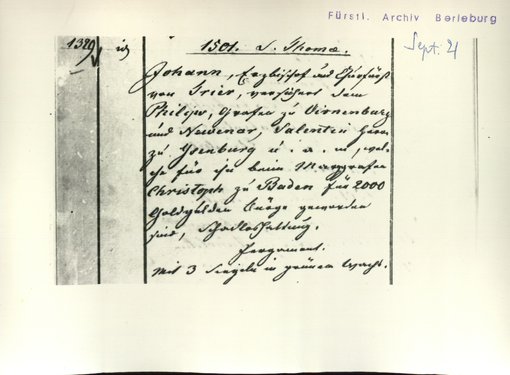 Fürstl. Archiv Berleburg
Sept. 21
1329
1501. S. Thomæ.
Johann, Erzbischof und Churfürst
von Trier, versichert dem
Philipp, Grafen zu Virnenburg
und Newenar, Salentin Herrn
zu Ysenburg u. a. m, wel-
che für ihn beim Marggrafen
Christoph zu Baden für 2000
Goldgulden Bürge geworden
sind, Schadloshaltung.
Pergament.
Mit 3 Siegeln in grünem Wachs.